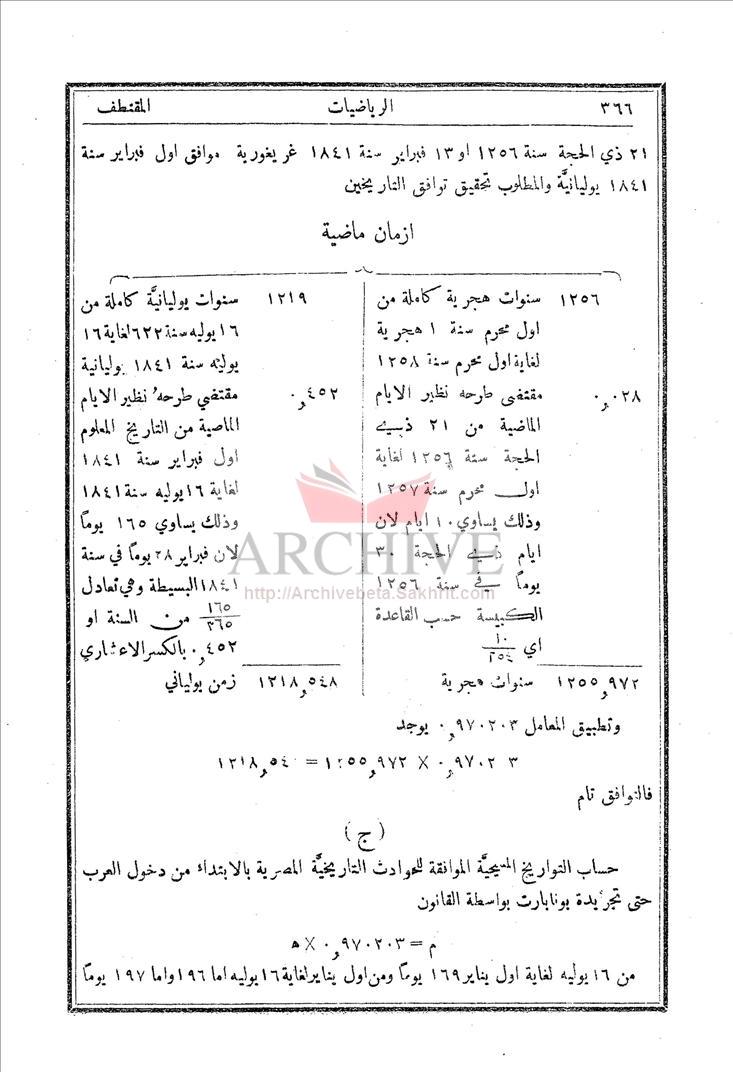 ٣٦٦ الرياضيات المقتطف
٢١ ذي الحجة سنة ١٢٥٦ او ١٣ فبراير سنة ١٨٤١ غريغورية موافق اول فبراير سنة
١٨٤١ يوليانيَّة والمطلوب تحقيق توافق التاريخين
ازمان ماضية
١٢٥٦ سنوات هجرية كاملة من
اول محرم سنة ١ هجرية
لغاية اول محرم سنة ١٢٥٨
٠٫٠٢٨ مقتضى طرحه نظير الايام
الماضية من ٢١ ذي
الحجة سنة ١٢٥٦ لغاية
اول محرم سنة ١٢٥٧
وذلك يساوي ١٠ ايام لان
ايام ذي الحجة ٣٠
يوماً في سنة ١٢٥٦
الكبيسة حسب القاعدة
اي ١٠/٣٥٤
١٢٥٥٫٩٧٢ سنوات هجرية
١٢١٩ سنوات يوليانيَّة كاملة من
١٦ يوليه سنة ٦٢٢ لغاية ١٦
يوليه سنة ١٨٤١ يوليانية
٠٫٤٥٢ مقتضي طرحه نظير الايام
الماضية من التاريخ المعلوم
اول فبراير سنة ١٨٤١
لغاية ١٦ يوليه سنة ١٨٤١
وذلك يساوي ١٦٥ يوماً
لان فبراير ٢٨ يوماً في سنة
١٨٤١ البسيطة وهي تعادل
١٦٥/٣٦٥ من السنة او
٠٫٤٥٢ بالكسر الاعشاري
١٢١٨٫٥٤٨ زمن يولياني
وتطبيق المعامل ٠٫٩٧٠٢٠٣ يوجد
٠٫٩٧٠٢٠٣ × ١٢٥٥٫٩٧٢ = ١٢١٨٫٥٤
فالتوافق تام
(ج)
حساب التواريخ المسيحيَّة الموافقة للحوادث التاريخيَّة المصرية بالابتداء من دخول العرب
حتى تجريدة بونابارت بواسطة القانون
م = ٠٫٩٧٠٢٠٣ × ه
من ١٦ يوليه لغاية اول يناير ١٦٩ يوماً ومن اول يناير لغاية ١٦ يوليه اما ١٩٦ واما ١٩٧ يوماً
ARCHIVE
http://Archivebeta.Sakhrit.com